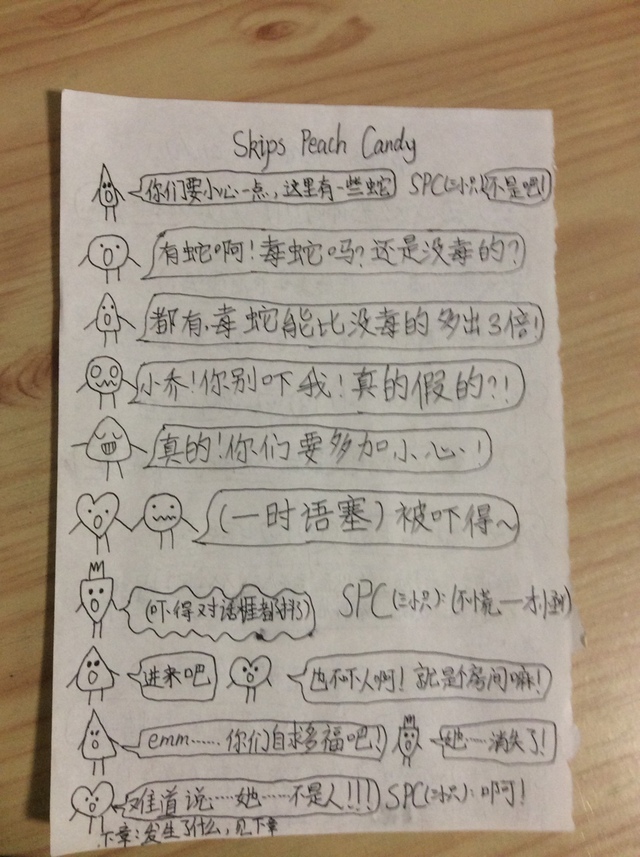 Skips Peach Candy
你们要小心一点，这里有一些蛇 SPC(三小只)不是吧！
有蛇啊！毒蛇吗？还是没毒的？
都有，毒蛇能比没毒的多出3倍！
小乔！你别吓我！真的假的？！
真的！你们要多加小心！
(一时语塞)被吓得~
(吓得对话框都抖了) SPC(三小只)：(不慌一
进来吧 也不吓人啊！就是个房间嘛！
emm……你们自求多福吧！ 她一消失了！
难道说……她……不是人!!!) SPC(三小只)：啊！
下章：发生了什么，见下章